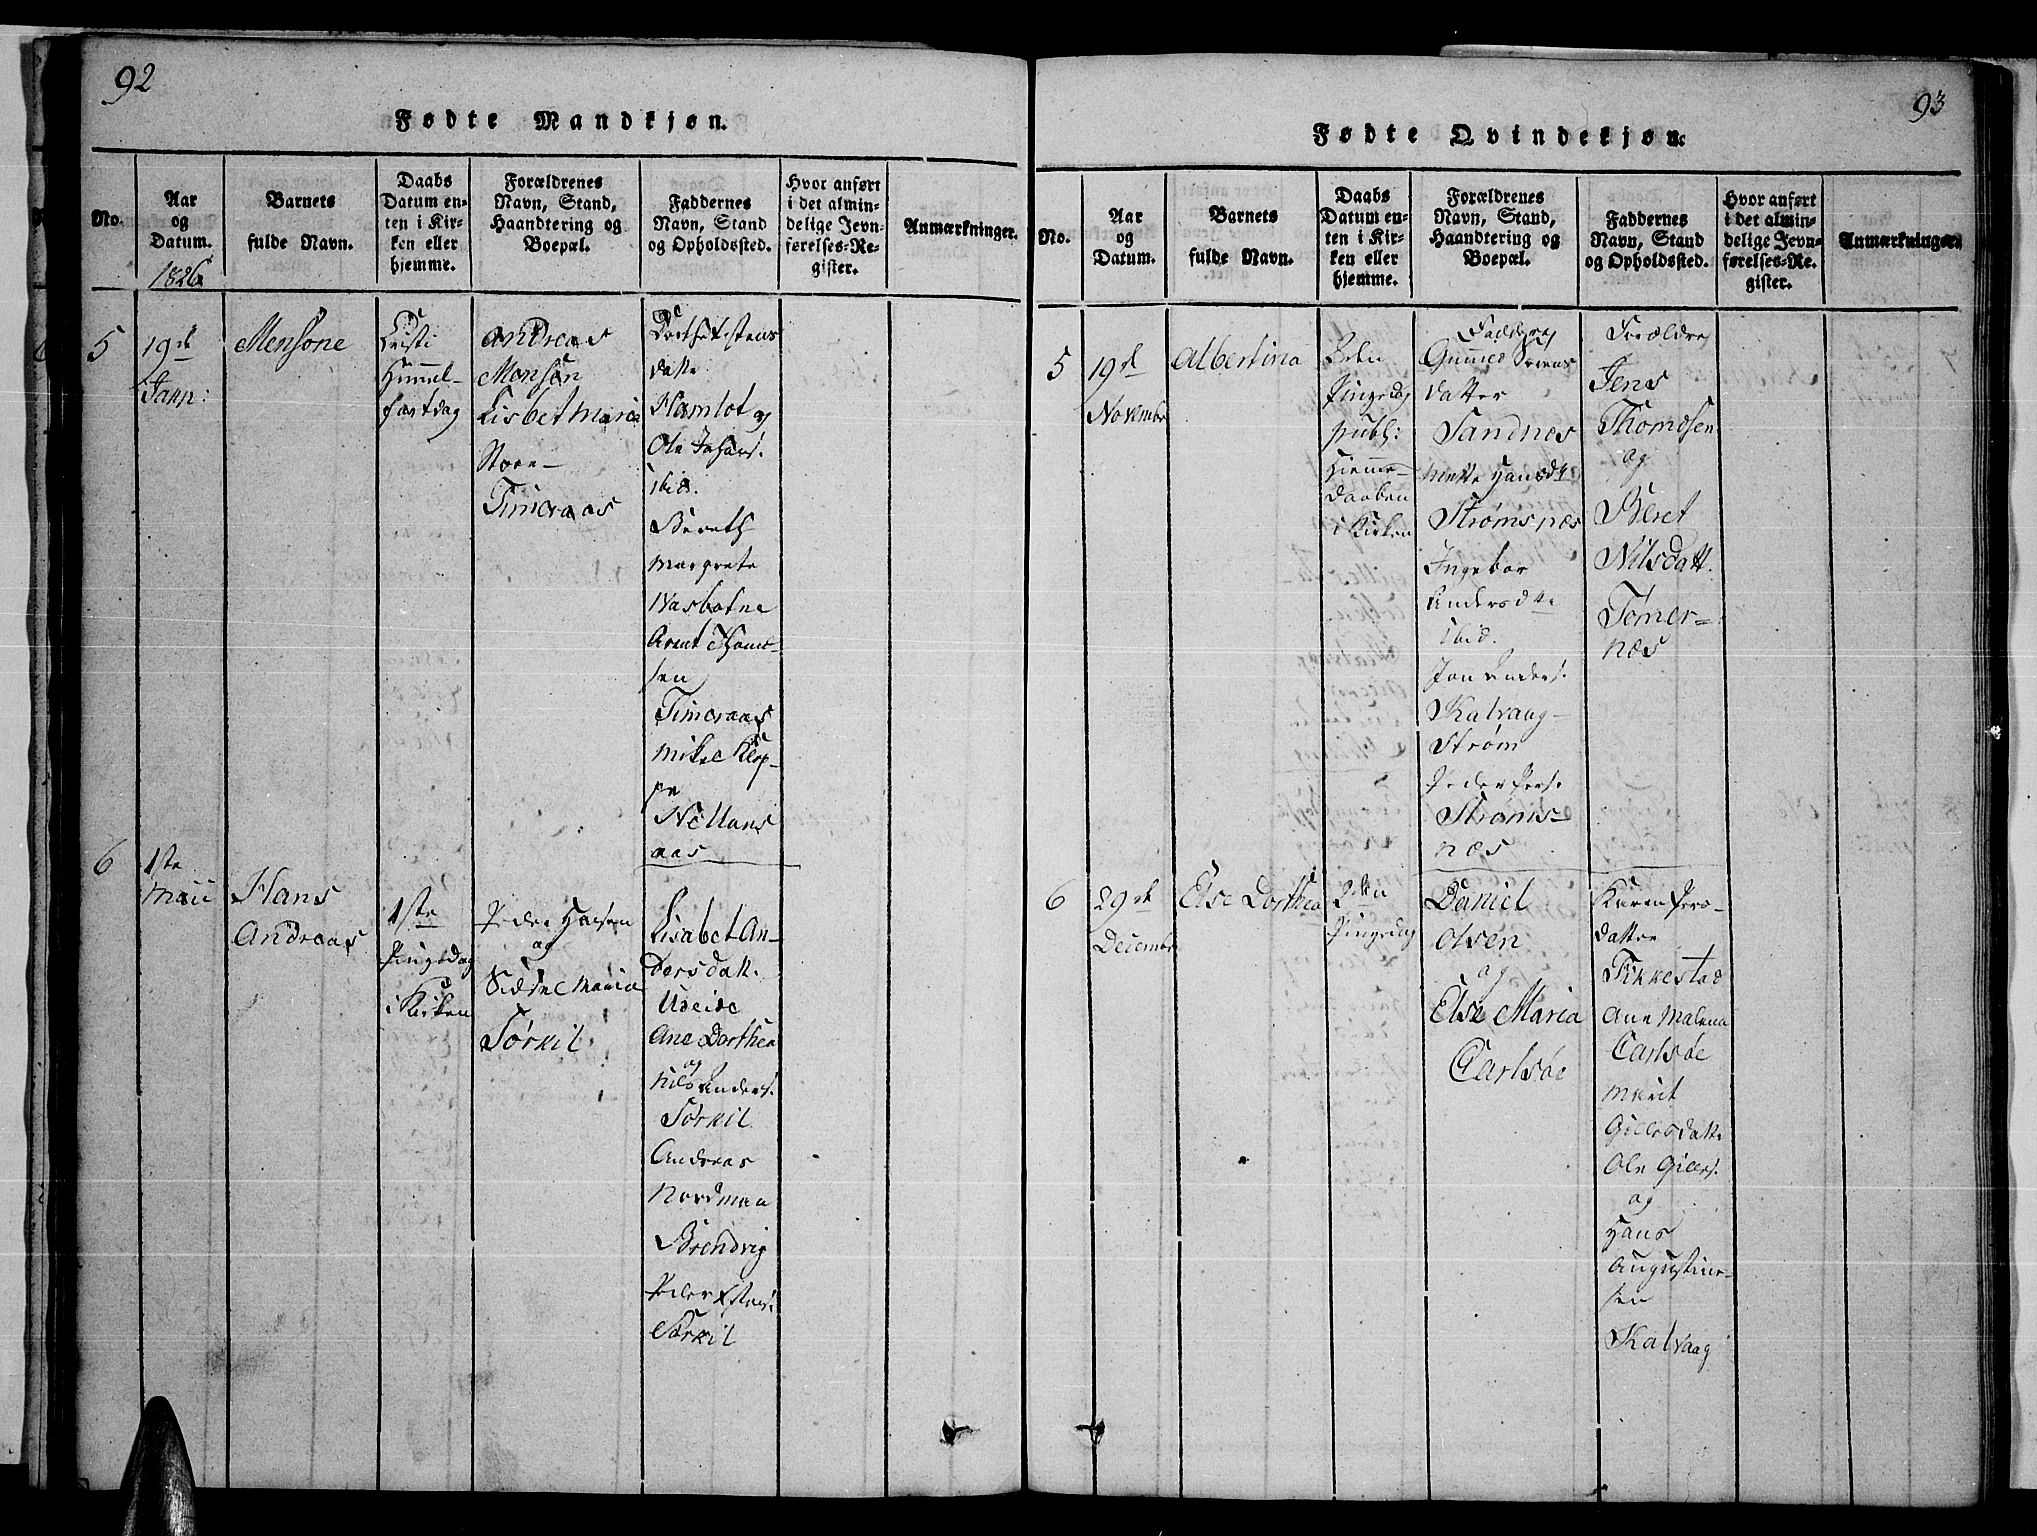 92
Fødte Mandkjøn.
No.
Aar
og
Datum.
1826
Barnets
fulde Navn.
Daabs
Datum en-
ten i Kir-
ken eller
hjemme.
Forældrenes
Navn, Stand,
Haandtering og
Boepæl.
Faddernes
Navn, Stand
og Opholdssted.
Hvor anført
i det almin-
delige Jevn-
førelses-Re-
gister.
Anmærkninger.
5
19de
Janr:
Mensone
Christi
Himmel-
fartdag
Andreas
Monsen
Lisbet Maria
Timeraas
datte
Hamlot og
Ole Johans.
ibid.
Bereth
Margrete
Nasbotne
Arent Thom-
sen
Timeraas
Mikel Klop-
pe
aas
6
1ste
Maii
Hans
Andreas
1ste
Pingsdag
i Kirken
Peder Hansen
og
Maria
Sørkil
Lisabet An-
dersdatt.
Useide
Ane Dorthea
og
Nils Anders.
Sørkil
Andreas
Nordman
Brendvig
Peder
Sørkil
93
Fødte Qvindekjøn.
No.
Aar
og
Datum.
Barnets
fulde Navn.
Daabs
Datum en-
ten i Kir-
ken eller
hjemme.
Forældrenes
Navn, Stand,
Haandtering og
Boepæl.
Faddernes
Navn, Stand
og Opholdssted.
Hvor anført
i det almin-
delige Jevn-
førelses-Re-
gister.
Anmærkninger.
5
19de
Novembr
Albertina
2den
Pingsdag
publ:
Hjemme-
daaben
i Kirken
Faddere
datter
Sandnes
Mette Hansdtr
Strømsnæs
Ingebor
Andersdtr
ibid.
Jon Anders.
Kalvaag-
Strøm
Peder Pers.
Strøms-
næs
Forældre
Jens
Thomsen
og
Beret
Nilsdatt.
Tømer-
næs
6
29de
Decembr
Else Dorthea
2den
Pingsdag
Daniel
Olsen
og
Else Maria
Carlsøe
Karen Pers-
datter
Fikkestad
Ane Malena
Carlsøe
Marit
Gillesdatte
Ole Gilles.
og
Hans
Augustinu-
sen
Kalvaag